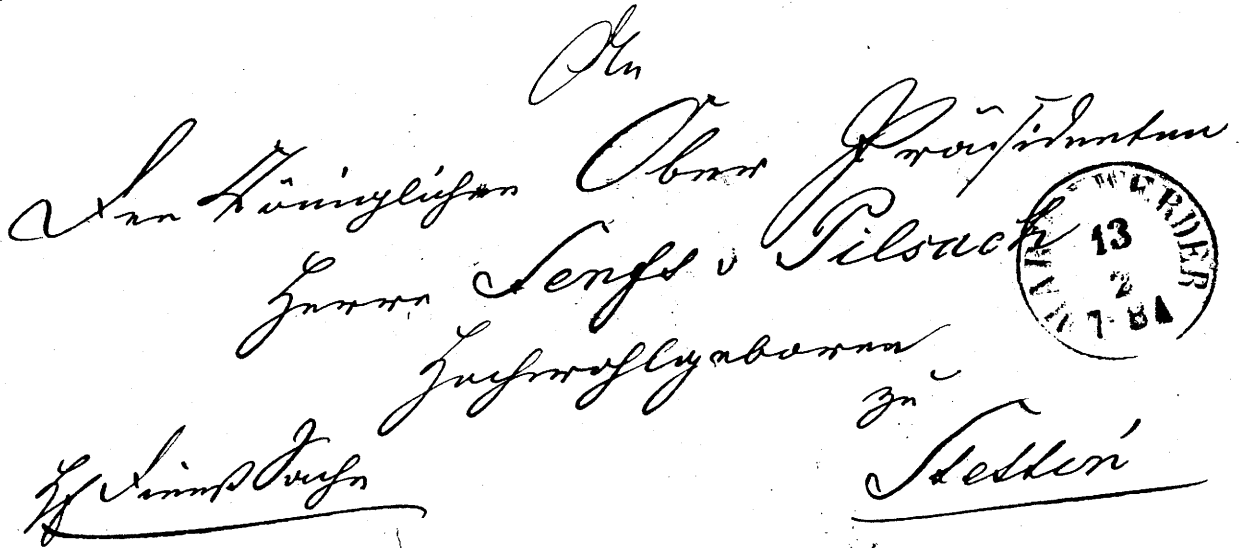 An
Den Königlichen Ober Präsidenten
Herrn Senfft v Pilsach
Hochwohlgeboren
zu
Stettin
Dienst Sache
MARIENWERDER
13
2
7-8A